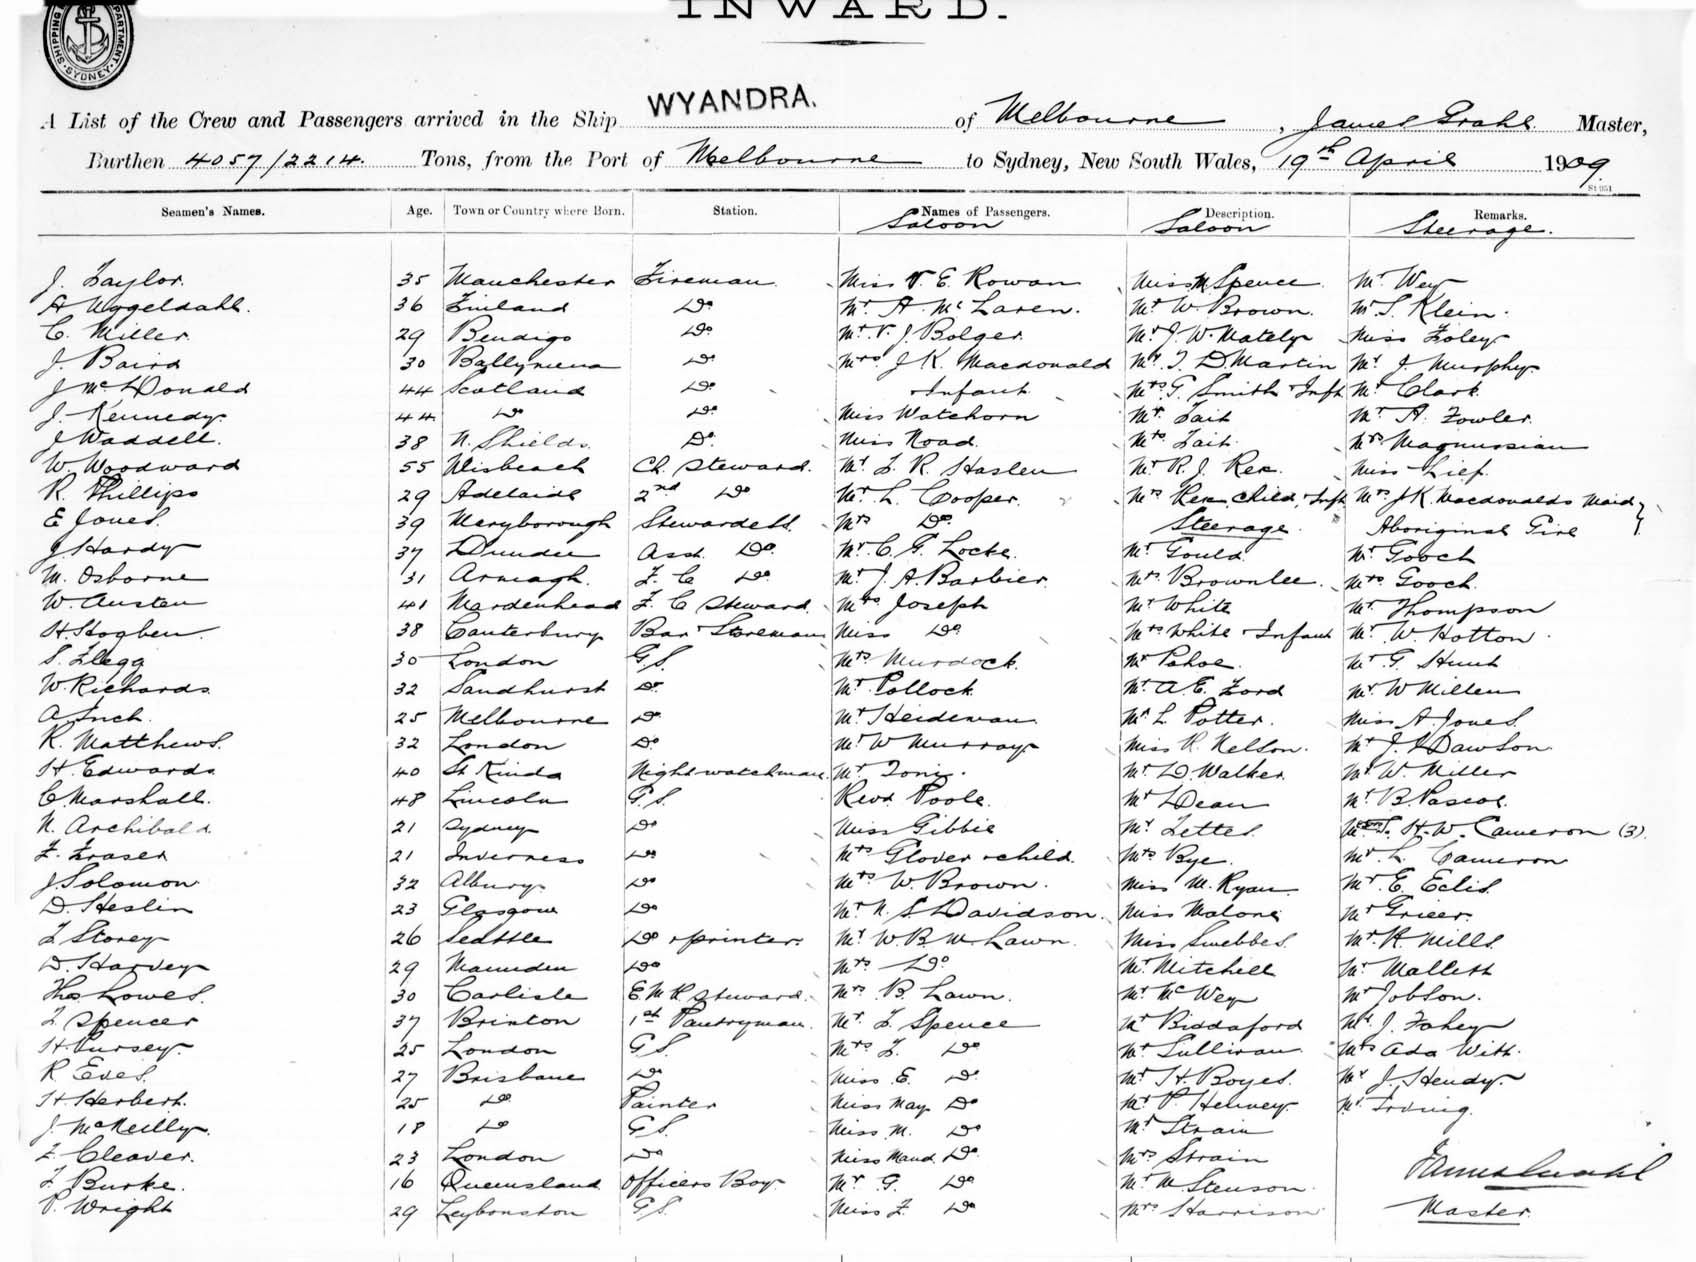 SHIPPING DEPARTMENT · SYDNEY ·
INWARD.
A List of the Crew and Passengers arrived in the Ship WYANDRA. of Melbourne, James Grahl Master,
Burthen 4057/2214 Tons, from the Port of Melbourne to Sydney, New South Wales, 19th April 1909.
St 951
Seamen's Names. Age. Town or Country where Born. Station. Names of Passengers. Description. Remarks.
Saloon Saloon Steerage.
J. Taylor. 35 Manchester Fireman. Miss V. E. Rowan Miss M Spence. Mr Wey
A Uggeldahl. 36 Finland Do Mr A. McLaren. Mr W. Brown. Mr S. Klein.
C. Miller. 29 Bendigo Do Mr V. J. Bolger. Mr J. W. Mately Miss Foley
J. Baird 30 Ballymena Do Mrs J. K. Macdonald Mr T. D. Martin Mr J. Murphy
J McDonald 44 Scotland Do Infant Mrs G. Smith & Inft Mr Clark
J. Kennedy 44 Do Do Miss Watchorn Mr Tait Mr A. Fowler.
J Waddell. 38 N. Shields. Do Miss Road. Mrs Tait. Mrs Magnussian
W. Woodward 55 Wisbeach Ch. Steward. Mr F. R. Haslen Mr R. J. Rex. Miss Lief.
R. Phillips 29 Adelaide 2nd Do Mr L. Cooper. Mrs Rex child & Inft Mrs J. K. Macdonalds Maid
E Jones. 39 Maryborough Stewardess. Mrs Do Steerage. Aboriginal Girl
J Hardy 37 Dundee Asst. Do Mr C. G. Locke. Mr Gould Mr Gooch
M. Osborne 31 Armagh. F. C Do Mr J. A. Barbier. Mrs Brownlee. Mrs Gooch.
W. Austen 41 Mardenhead F. C Steward. Mrs Joseph Mr White Mr Thompson
H. Hogben. 38 Canterbury Bar Storeman Miss Do Mrs White & Infant Mr W. Hotton.
S. Flegg 30 London G.S. Mrs Murdock. Mr Pahoe. Mr G. Hunt
W. Richards 32 Sandhurst Do Mr Pollock Mr A. E. Ford Mr W Millen
A Inch. 25 Melbourne Do Mr Heideman. Mr L Potter. Miss A. Jones.
R. Matthews. 32 London Do Mr W Murray Miss R. Nelson. Mr J. Dawson
H. Edwards 40 St Kinda Nightwatchman. Mr Toni. Mr D. Walker. Mr W. Miller
C Marshall. 48 Lincoln G.S. Revd Poole. Mr Dean Mr B. Pascoe.
N. Archibald. 21 Sydney Do Miss Gibbie Mr Fettes. H. W. Cameron (3)
F. Fraser 21 Inverness Do Mrs Glover & child. Mrs Bye. Mr L Cameron
J Solomon 32 Albury. Do Mrs W. Brown. Miss M. Ryan Mr E. Eclis.
D. Heslin 23 Glasgow Do Mr N. S. Davidson. Miss Malone Mr Grieer.
F Storey 26 Seattle Do & printer. Mr W. B. W. Lawn. Miss Swebbes. Mr R. Mills.
D. Harvey 29 Do Mrs Do Mr Mitchell Mr Mallett
Thos Lowes. 30 Carlisle E. M. R. Steward. Mrs B. Lawn. Mr McWey Mr Jobson.
F Spencer 37 Brinton 1st Pantryman. Mr F. Spence Mr Biddaford Mr J. Fahey
H. Pursey. 25 London G.S. Mrs F. Do Mr Sullivan. Mrs Ada Witt.
R Eves. 27 Brisbane Do Miss E. Do Mr H. Boyes. Mr J. Hendy.
H. Herbert. 25 Do Painter Miss May Do Mr P. Helmey. Mr Irving.
J. McNeilly. 18 Do G.S. Miss M. Do Mr Strain
F Cleaver. 23 London Do Miss Maud Do Mrs Strain James Grahl
F Burke. 16 Queensland Officers Boy. Mr G. Do Mr M. Stenson. Master.
P. Wright 29 Leybonston G.S. Miss F. Do Mrs Harrison.